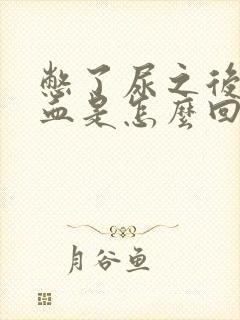 憋了尿之後
血是怎麼回
月谷魚